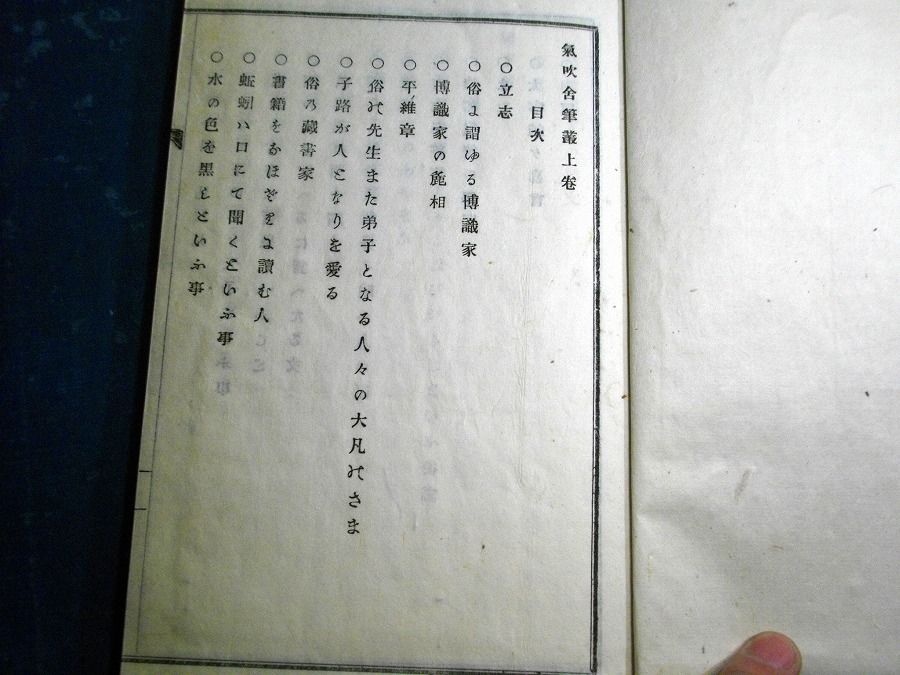 氣吹舍筆叢上卷
目次
○立志
○俗よ謂ゆる博識家
○博識家の麁相
○平維章
○俗の先生また弟子となる人々の大凡のさま
○子路が人となりを愛る
○俗の藏書家
○書籍をおほぞをよ讀む人
○蚯蚓ハ口にて聞くといふ事
○水の色を黒しといふ事